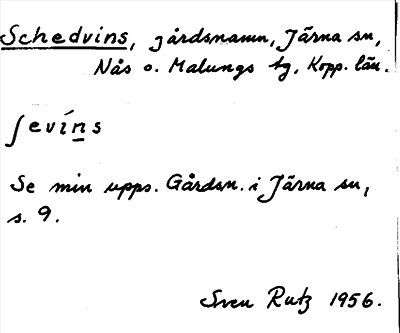 Schedvins, gårdsnamn, Järna sn,
Nås o. Malungs tg, Kopp. län.
ʃevíṉs
Se min upps. Gårdsn. i Järna sn,
s. 9.
Sven Rutz 1956.